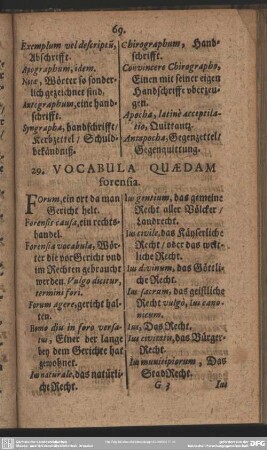 69.
Exemplum vel descriptū,
Abschrifft.
Apographum, idem.
Notæ, Wörter so sonder-
lich gezeichnet sind,
Autographum, eine hand-
schrifft.
Syngrapha, handschrifft/
Kerbzettel/ Schuld-
bekändniß.
Chirographum, Hand-
schrifft.
Convincere Chirographo,
Einen mit seiner eigen
Handschrifft vberzeu-
gen.
Apocha, latinè acceptila-
tio, Quittantz.
Antapocha, Gegenzettel/
Gegenquittung.
29. VOCABULA QUÆDAM
forensia.
Forum, ein ort da man
Gericht helt.
Forensis causa, ein rechts-
handel.
Forensia vocabula, Wör-
ter die vor Gericht vnd
im Rechten gebraucht
werden. Vulgo dicitur,
termini fori.
Forum agere, gericht hal-
ten.
Homo diu in foro versa-
tus, Einer der lange
bey dem Gerichte hat
gewohnet.
Ius naturale, das natür-
liche Recht.
Ius gentium, das gemeine
Recht aller Völcker/
Landrecht.
Ius civile, das Käyserliche
Recht/ oder das welt-
liche Recht.
Ius divinum, das Göttli-
che Recht.
Ius sacrum, das geistliche
Recht vulgò, ius cano-
nicum.
Ius, Das Recht.
Ius civitatis, das Bürger-
Recht.
Ius municipiorum, Das
StadRecht.
G 3
Ius